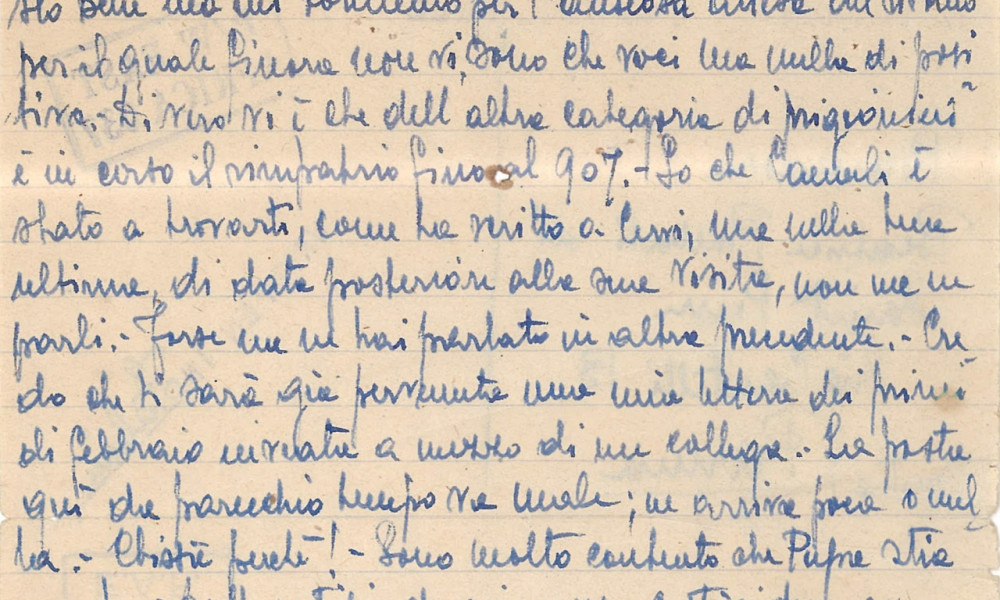 sto bene ma mi tormento per l'
per il quale finora non vi sono che voci ma nulla di posi
tivo.- Di vero vi è che dell'altra categoria di prigionieri
è in corso il rimpatrio fino al 907.- So che Camuli è
stato a trovarti, come ha scritto a Cervi, ma nella tua
ultima, di data posteriore alla sua visita, non me ne
parli.- Forse me ne hai parlato in altra precedente.- Cre
do che ti sarà già pervenuta una mia lettera dei primi
di febbraio inviata a mezzo di un collega.- La posta
qui da parecchio tempo va male; ne arriva poca o nul
la.- Chissà perché!- Sono molto contento che Pupa stia